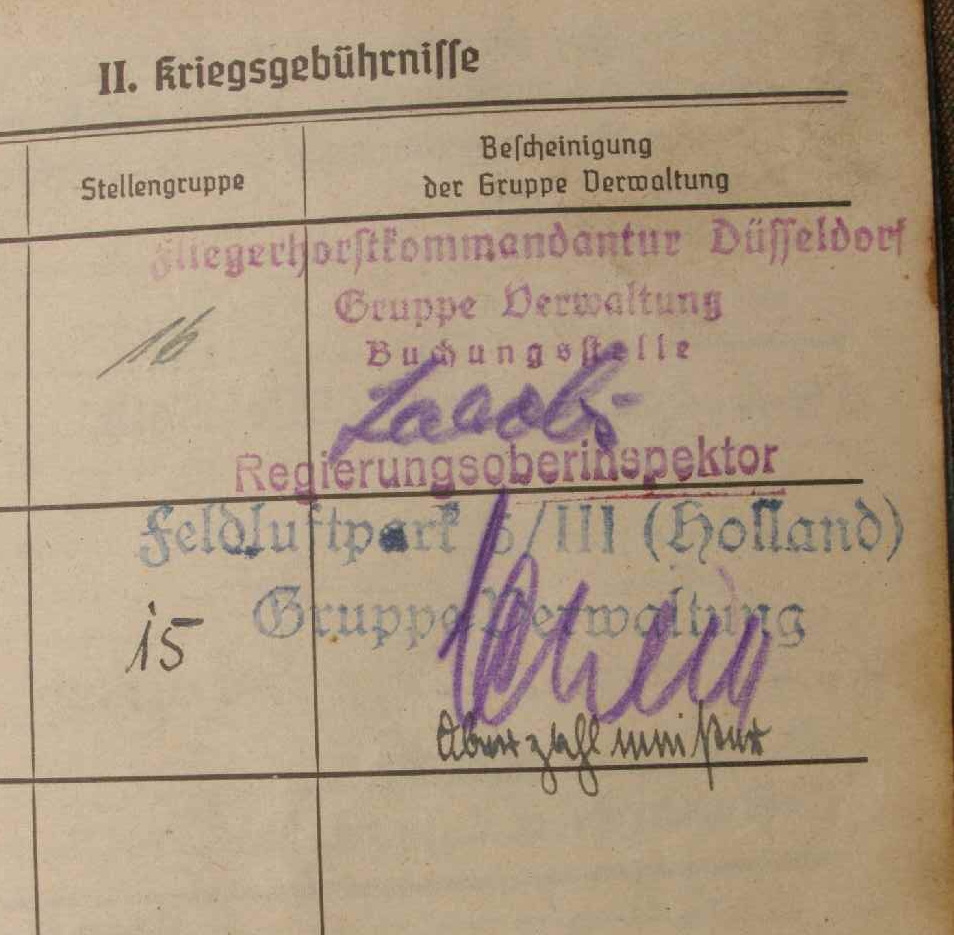 II. Kriegsgebührnisse
Stellengruppe
Bescheinigung
der Gruppe Verwaltung
Fliegerhorstkommandantur Düsseldorf
Gruppe Verwaltung
Buchungsstelle
16
Regierungsoberinspektor
Feldluftpark 5/III (Holland)
Gruppe Verwaltung
15
Oberzahlmeister